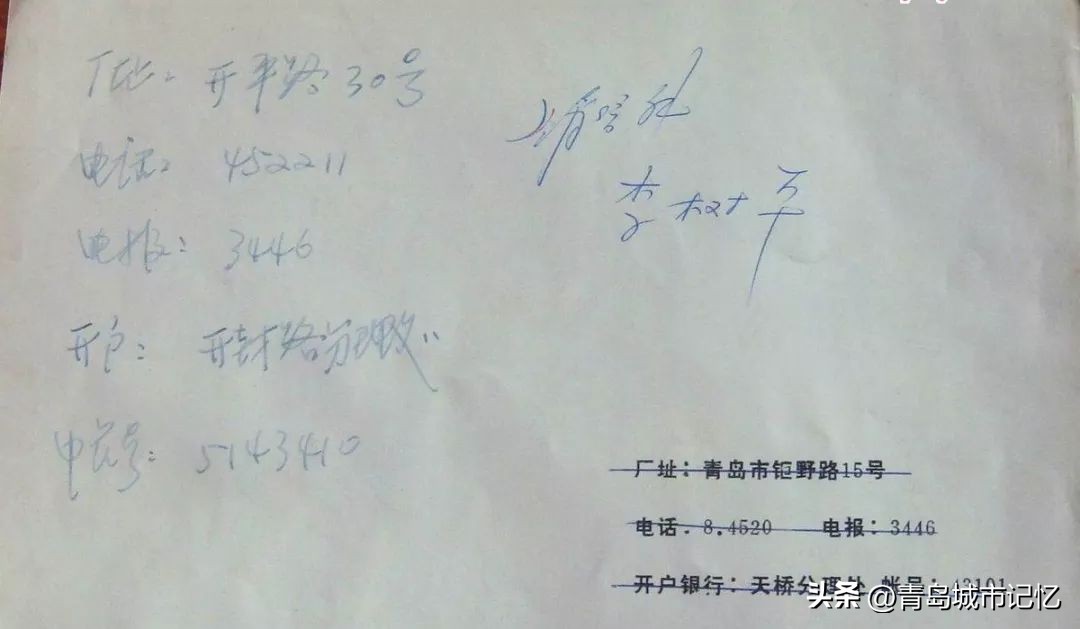 厂址：开平路30号
电话：452211
电报：3446
开户：开封路分理处
帐号：5143410
李树平
厂址：青岛市钜野路15号
电话．8.4520 电报：3446
开户银行：天桥分理处 帐号：43101
头条 @青岛城市记忆